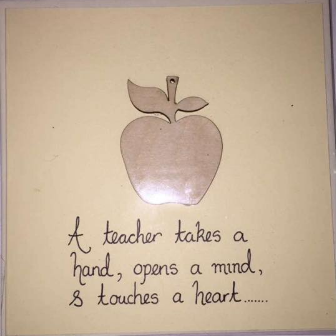 A teacher takes a
hand, opens a mind,
& touches a heart.......